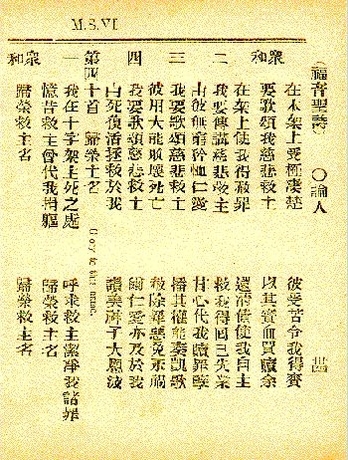 M.S.VI
福音聖詩 ○論人
在木架上受極凄楚 彼受苦令我得賚
衆和 要歌頌我慈悲救主 以其寶血買贖余
在架上使我得赦罪 還清債使我自主
二 我要傳講慈悲救主 救我得回已失業
由彼無窮矜恤仁愛 甘心代我贖罪孽
三 我要歌頌慈悲救主 播其權能奏凱歌
彼用大能敗壞死亡 救除罪惡免禍
四 我要歌頌慈悲救主 謝仁愛亦及於我
由死復活拯救於我 讚美神子大恩波
第四十首 歸榮主名 Glory to his name.
一 我在十字架主死之處 呼求救主潔淨我諸罪
憶昔救主曾代我捐軀 歸榮救主名
衆和 歸榮救主名 歸榮救主名